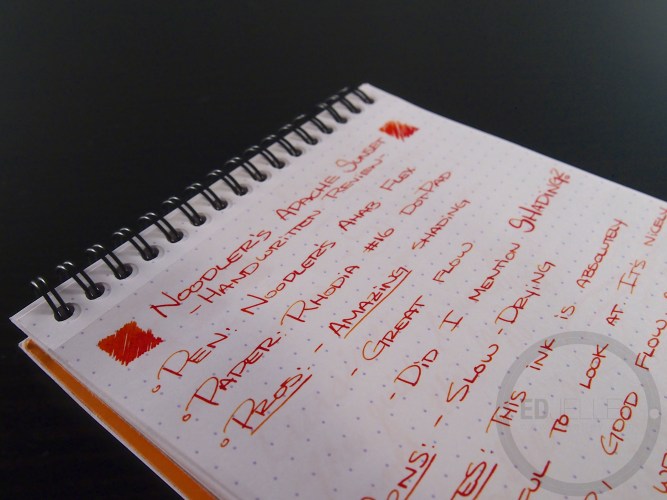 Noodler's Apache Sunset
- Handwritten Review -
• Pen: Noodler's Ahab Flex
• Paper: Rhodia #16 DotPad
• Pros: - Amazing shading
- Great flow
- Did I mention shading?
- Slow-drying
This ink is absolutely
to look at. It's nice
Good flow